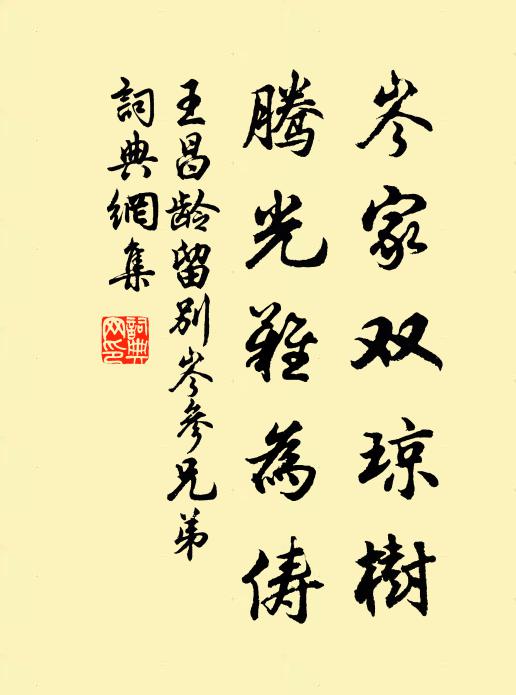 岑家双琼樹
腾光難為俦
王昌龄留别岑參兄弟
詞典網集
詞典
网印